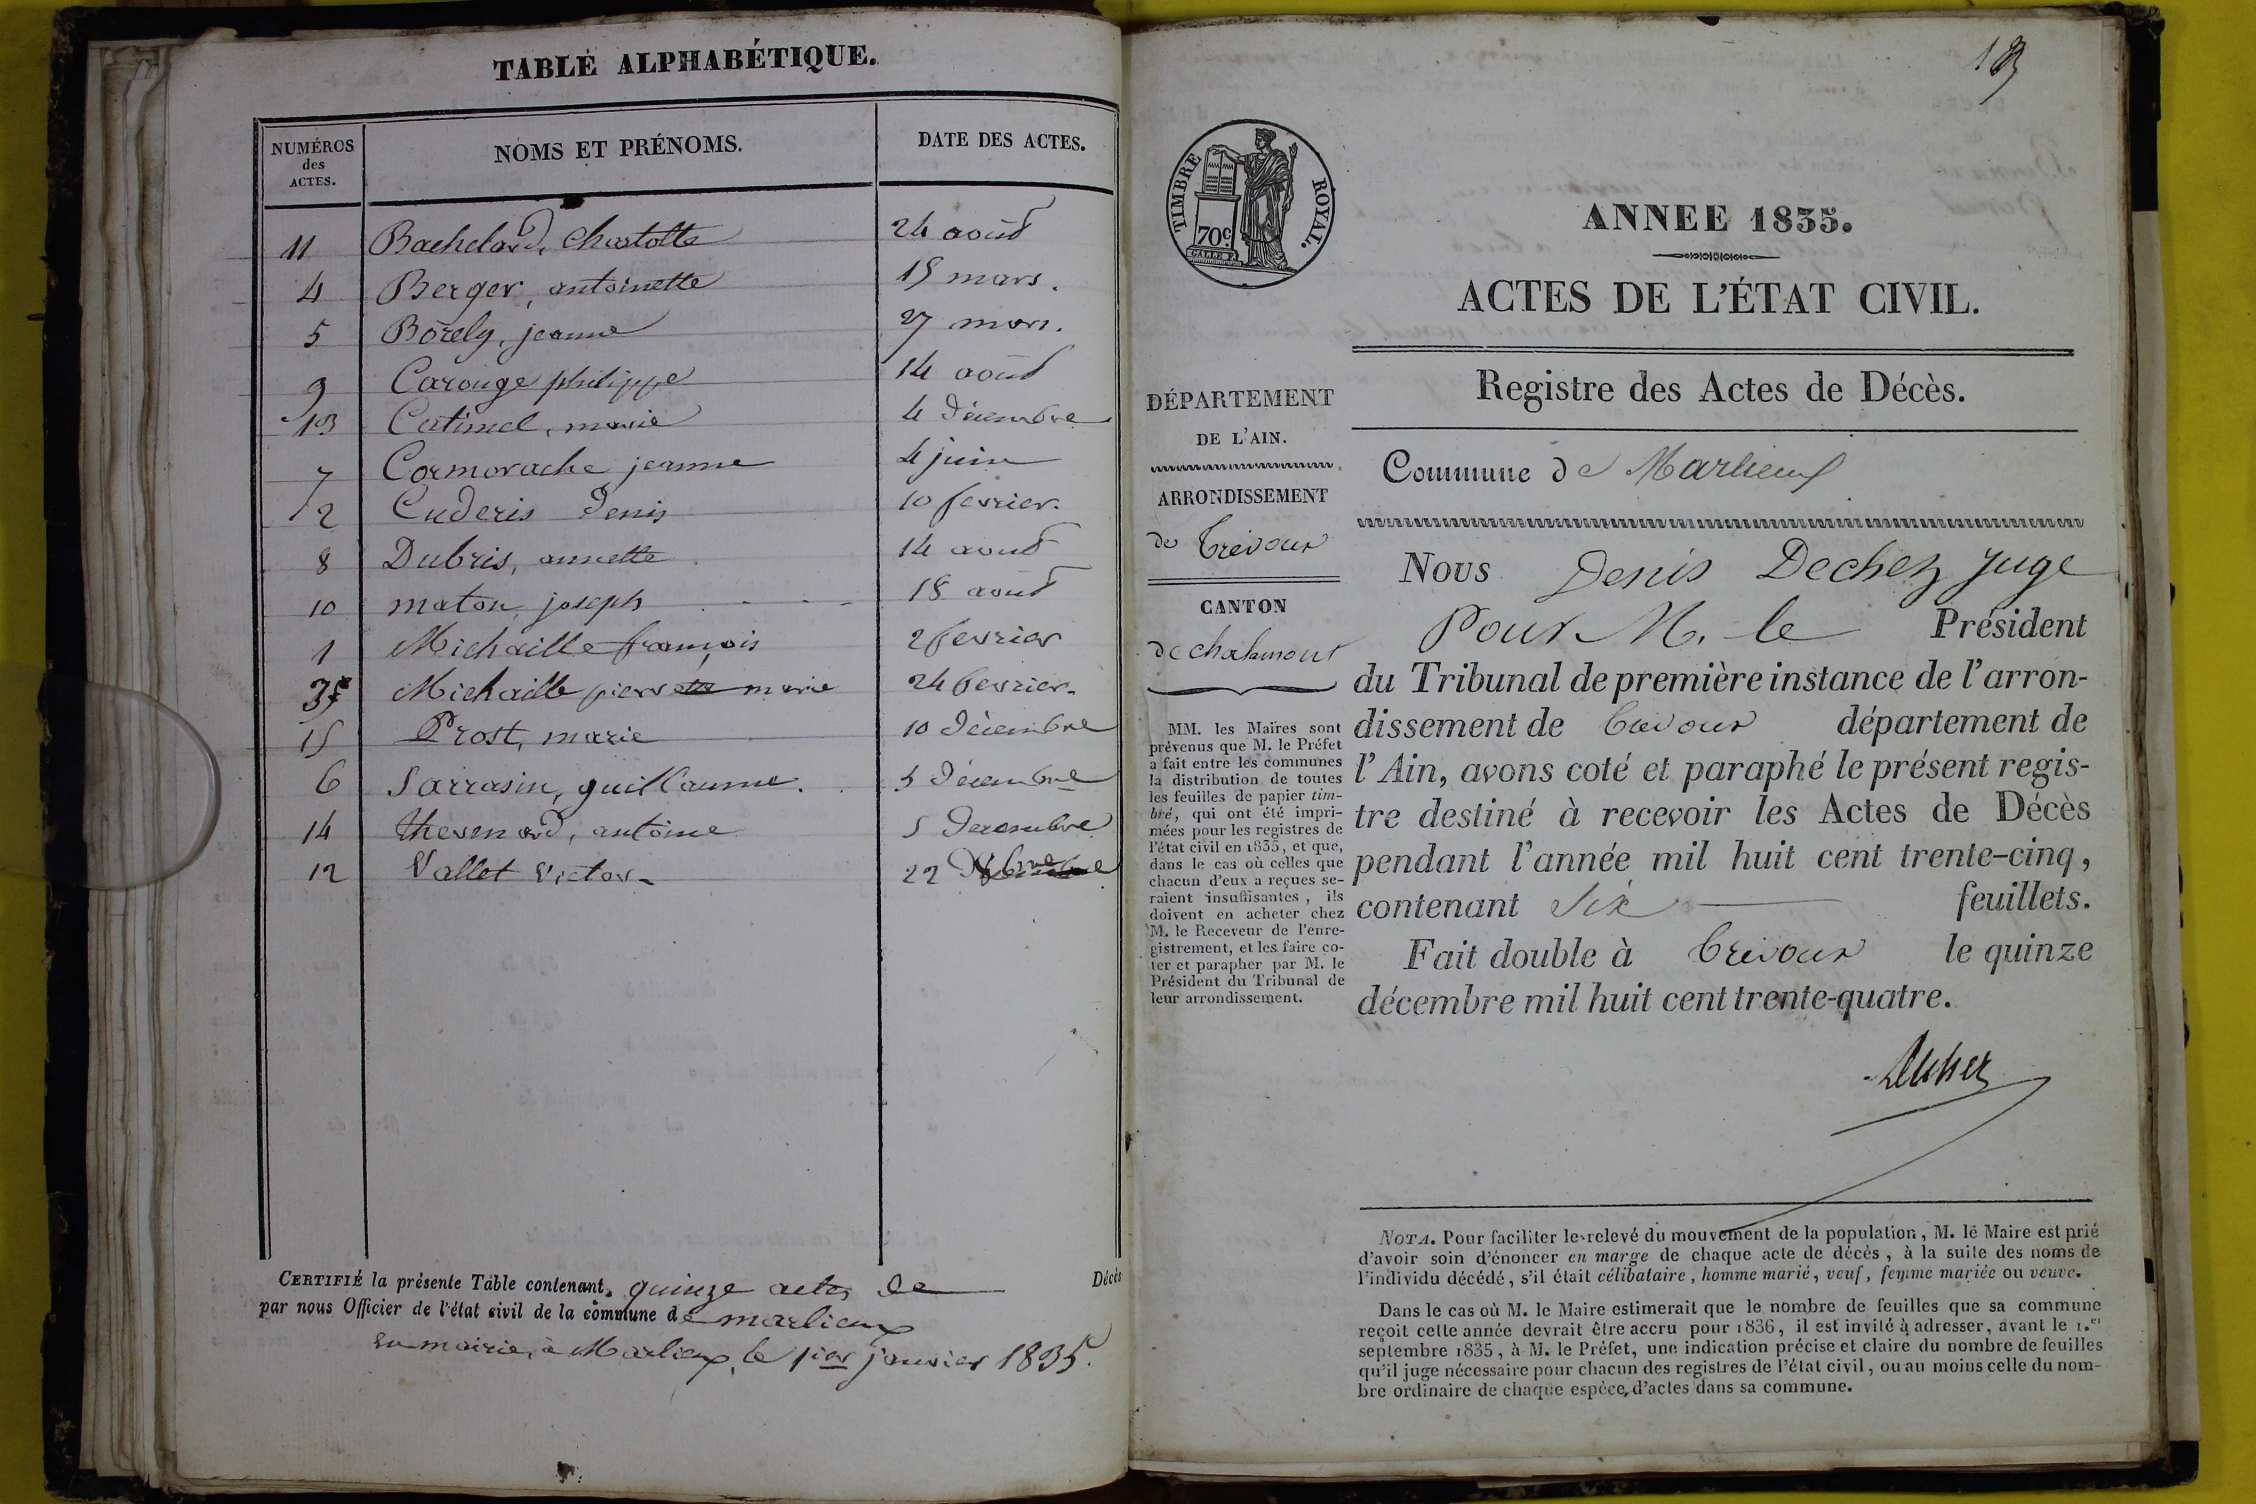 TABLE ALPHABÉTIQUE.
NUMÉROS des ACTES. NOMS ET PRÉNOMS. DATE DES ACTES.
11 Bachelard, Charlotte 24 août
4 Berger, antoinette 15 mars.
5 Borely, jeanne 27 mars.
9 Carouge philippe 14 août
13 Catimel, marie 4 décembre
7 Cormorache jeanne 4 juin
2 Cuderis Denis 10 fevrier.
8 Dubris, annette 14 août
10 maton, joseph 18 août
1 Michaille françois 2 fevrier
3 Michaille pierre marie 24 fevrier.
15 Prost, marie 10 décembre
6 Sarrasin, guillaume. 5 décembre
14 thevenard, antoine 5 decembre
12 Vallet Victor 22
CERTIFIÉ la présente Table contenant quinze actes de Décès
par nous Officier de l'état civil de la commune de marlieux
en mairie, à Marlieux, le 1ier janvier 1835.
TIMBRE ROYAL.
70c.
ANNEE 1835.
ACTES DE L'ÉTAT CIVIL.
Registre des Actes de Décès.
Commune de Marlieux
DÉPARTEMENT
DE L'AIN.
ARRONDISSEMENT
de Trévoux
CANTON
de chalamont
MM. les Maires sont
prévenus que M. le Préfet
a fait entre les communes
la distribution de toutes
les feuilles de papier tim-
bré, qui ont été impri-
mées pour les registres de
l'état civil en 1835, et que,
dans le cas où celles que
chacun d'eux a reçues se-
raient insuffisantes, ils
doivent en acheter chez
M. le Receveur de l'enre-
gistrement, et les faire co-
ter et parapher par M. le
Président du Tribunal de
leur arrondissement.
Nous Denis Dechez Juge
Pour M. le Président
du Tribunal de première instance de l'arron-
dissement de Trevoux département de
l'Ain, avons coté et paraphé le présent regis-
tre destiné à recevoir les Actes de Décès
pendant l'année mil huit cent trente-cinq,
contenant Six feuillets.
Fait double à Trévoux le quinze
décembre mil huit cent trente-quatre.
Dechez
NOTA. Pour faciliter le relevé du mouvement de la population, M. le Maire est prié
d'avoir soin d'énoncer en marge de chaque acte de décès, à la suite des noms de
l'individu décédé, s'il était célibataire, homme marié, veuf, femme mariée ou veuve.
Dans le cas où M. le Maire estimerait que le nombre de feuilles que sa commune
reçoit cette année devrait être accru pour 1836, il est invité à adresser, avant le 1.er
septembre 1835, à M. le Préfet, une indication précise et claire du nombre de feuilles
qu'il juge nécessaire pour chacun des registres de l'état civil, ou au moins celle du nom-
bre ordinaire de chaque espèce d'actes dans sa commune.